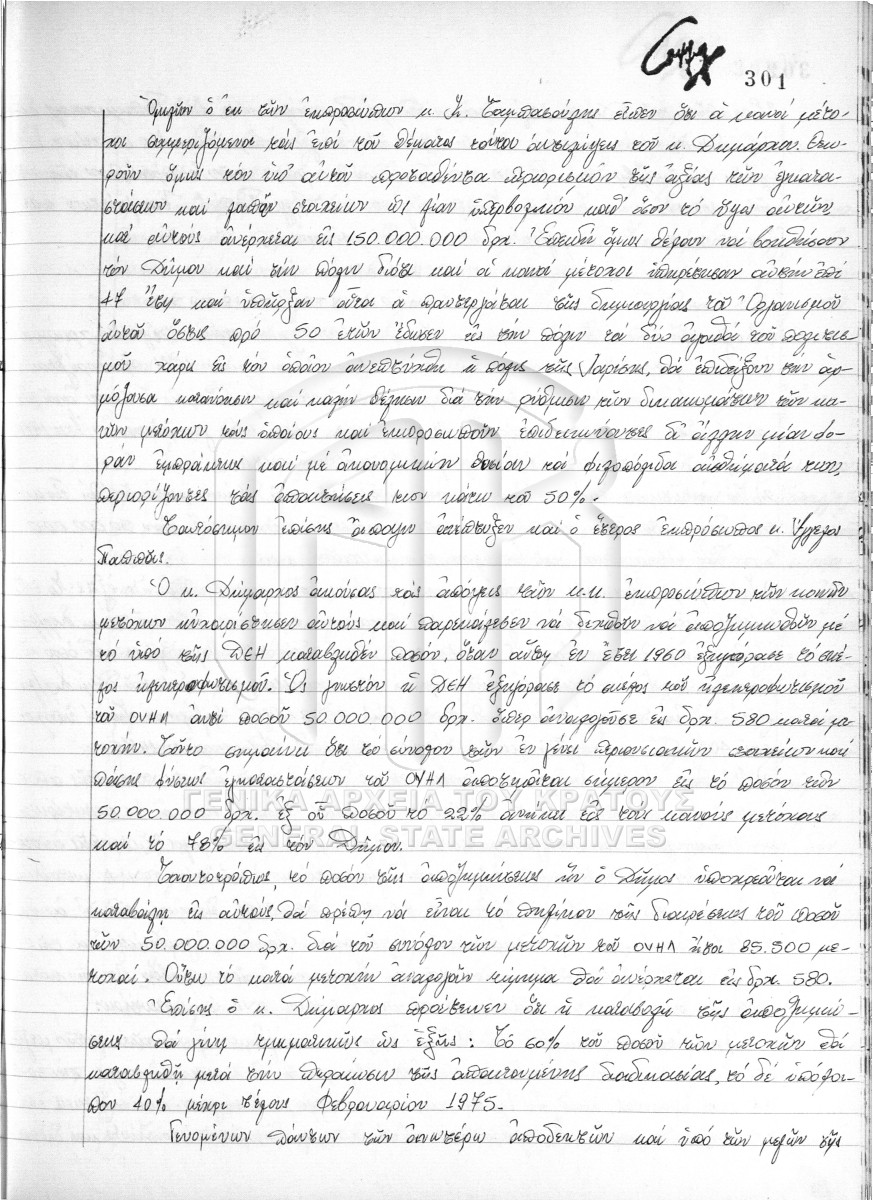 301
Ὁμιλῶν ὁ ἐκ τῶν ἐκπροσώπων κ. Ταμπασούλης εἶπεν ὅτι οἱ κοινοί μέτο-
χοι συμμεριζόμενοι τάς ἐπί τοῦ θέματος τούτου ἀντιλήψεις τοῦ κ. Δημάρχου. Θεω-
ροῦν ὅμως τόν ὑπ' αὐτοῦ προταθέντα περιορισμόν τῆς ἀξίας τῶν ἐγκατα-
στάσεων καί λοιπῶν στοιχείων ὡς λίαν ὑπερβολικόν καθ' ὅσον τό ὕψος αὐτῶν
κατ' αὐτούς ἀνέρχεται εἰς 150.000.000 δρχ. Ἐπειδή ὅμως θέλουν νά βοηθήσουν
τόν Δῆμον καί τήν πόλιν διότι καί οἱ κοινοί μέτοχοι ὑπηρέτησαν αὐτήν ἐπί
47 ἔτη καί ὑπῆρξαν οὗτοι οἱ πρωτεργάται τῆς δημιουργίας τοῦ Ὀργανισμοῦ
αὐτοῦ ὅστις πρό 50 ἐτῶν ἔδωσεν εἰς τήν πόλιν τά δύο ἀγαθά τοῦ πολιτισ-
μοῦ χάρις εἰς τόν ὁποῖον ἀνεπτύχθη ἡ πόλις τῆς Λαρίσης, θά ἐπιδείξουν τήν ἁρ-
μόζουσα κατανόησιν καί καλήν θέλησιν διά τήν ρύθμισιν τῶν δικαιωμάτων τῶν κοι-
νῶν μετόχων τούς ὁποίους καί ἐκπροσωποῦν ἐπιδεικνύοντες δι' ἄλλην μίαν φο-
ράν ἐμπράκτως καί μέ οἰκονομικήν θυσίαν τά φιλοπόλιδα αἰσθήματά των,
περιορίζοντες τάς ἀπαιτήσεις των κάτω τοῦ 50%.
Ταυτόσημον ἐπίσης ἄποψιν ἀνέπτυξεν καί ὁ ἕτερος ἐκπρόσωπος κ. Ἄγγελος
Παππᾶς.
Ὁ κ. Δήμαρχος ἀκούσας τάς ἀπόψεις τῶν κ.κ. ἐκπροσώπων τῶν κοινῶν
μετόχων εὐχαρίστησεν αὐτούς καί παρεκάλεσεν νά δεχθοῦν νά ἀποζημιωθοῦν μέ
τό ὑπό τῆς ΔΕΗ καταβληθέν ποσόν, ὅταν αὕτη ἐν ἔτει 1960 ἐξηγόρασε τό σκέ-
λος ἠλεκτροφωτισμοῦ. Ὡς γνωστόν ἡ ΔΕΗ ἐξηγόρασε τό σκέλος τοῦ ἠλεκτροφωτισμοῦ
τοῦ ΟΥΗΛ ἀντί ποσοῦ 50.000.000 δρχ. ὅπερ ἀναλογοῦσε εἰς δρχ. 580 κατά με-
τοχήν. Τοῦτο σημαίνει ὅτι τό σύνολον τῶν ἐν γένει περιουσιακῶν στοιχείων καί
πάσης φύσεως ἐγκαταστάσεων τοῦ ΟΥΗΛ ἀποτιμᾶται σήμερον εἰς τό ποσόν τῶν
50.000.000 δρχ. ἐξ οὗ ποσοῦ τό 22% ἀνήκει εἰς τούς κοινούς μετόχους
καί τό 78% εἰς τόν Δῆμον.
ΓΕΝΙΚΑ ΑΡΧΕΙΑ ΤΟΥ ΚΡΑΤΟΥΣ
GENERAL STATE ARCHIVES
Τοιουτοτρόπως, τό ποσόν τῆς ἀποζημιώσεως ἥν ὁ Δῆμος ὑποχρεοῦται νά
καταβάλῃ εἰς αὐτούς, θά πρέπῃ νά εἶναι τό πηλίκον τῆς διαιρέσεως τοῦ ποσοῦ
τῶν 50.000.000 δρχ. διά τοῦ συνόλου τῶν μετοχῶν τοῦ ΟΥΗΛ ἤτοι 85.500 με-
τοχαί. Οὕτω τό κατά μετοχήν ἀναλογοῦν τίμημα θά ἀνέρχεται εἰς δρχ. 580.
Ἐπίσης ὁ κ. Δήμαρχος προέτεινεν ὅτι ἡ καταβολή τῆς ἀποζημιώ-
σεως θά γίνῃ τμηματικῶς ὡς ἑξῆς: Τό 60% τοῦ ποσοῦ τῶν μετοχῶν θά
καταβληθῇ μετά τήν περαίωσιν τῆς ἀπαιτουμένης διαδικασίας, τό δέ ὑπόλοι-
πον 40% μέχρι τέλους Φεβρουαρίου 1975.
Γενομένων πάντων τῶν ἀνωτέρω ἀποδεκτῶν καί ὑπό τῶν μελῶν τῆς